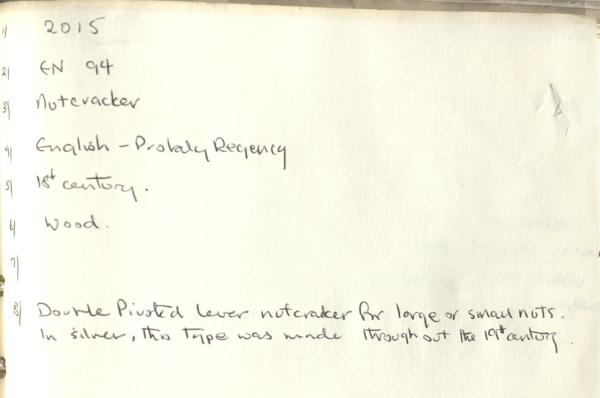 1) 2015
2) EN 94
3) Nutcracker
4) English - Probaly Regency
5) 18t century.
6) Wood.
7)
8) Double Pivoted lever nutcraker for large or small nuts.
In silver, this type was made throughout the 19t century.